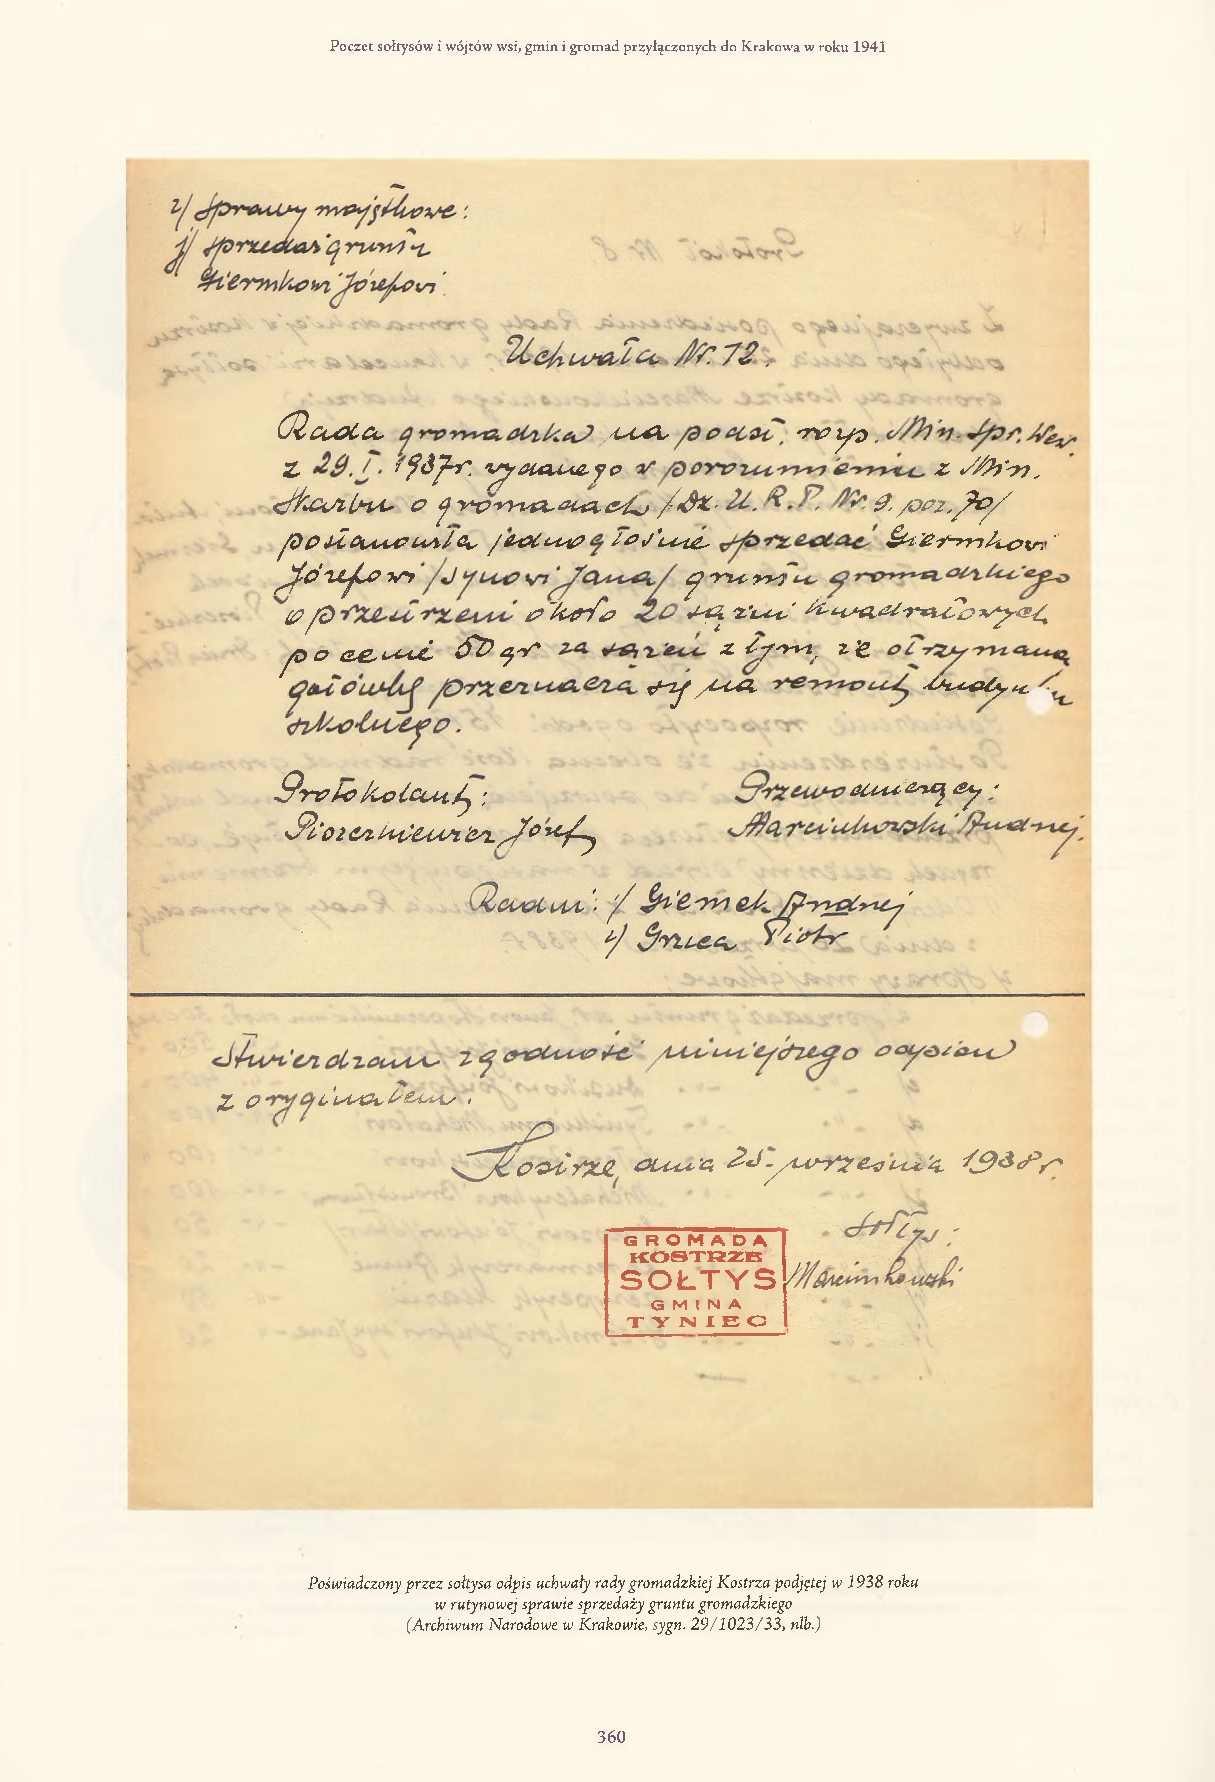 Poczet sołtysów i wójtów wsi, gmin i gromad przyłączonych do Krakowa w roku 1941
2/ Sprawy majątkowe:
j/ sprzedaż gruntu
Giermkowi Józefowi.
Uchwała Nr. 12.
Rada gromadzka na podst. rozp. Min. Spr. Wew.
z 29.I.1937r. wydanego w porozumieniu z Min.
Skarbu o gromadach /Dz. U. R. P. Nr. 9. poz. 70/
postanowiła jednogłośnie sprzedać Giermkowi
Józefowi /synowi Jana/ gruntu gromadzkiego
o przestrzeni około 20 sążni kwadratowych
po cenie 50 gr za sążeń z tym, że otrzymaną
gotówkę przeznacza się na remont budynku
szkolnego.
Protokolant:
Przewodniczący:
Józef
Marcinkowski Andrzej.
Radni: 1/ Giemek Andrzej
2/ Gruca Piotr
Stwierdzam zgodność niniejszego odpisu
z oryginałem.
Kostrze, dnia 25. września 1938 r.
Sołtys:
GROMADA
KOSTRZE
SOŁTYS
GMINA
TYNIEC
Marcinkowski
Poświadczony przez sołtysa odpis uchwały rady gromadzkiej Kostrza podjętej w 1938 roku
w rutynowej sprawie sprzedaży gruntu gromadzkiego
(Archiwum Narodowe w Krakowie, sygn. 29/1023/33, nlb.)
360